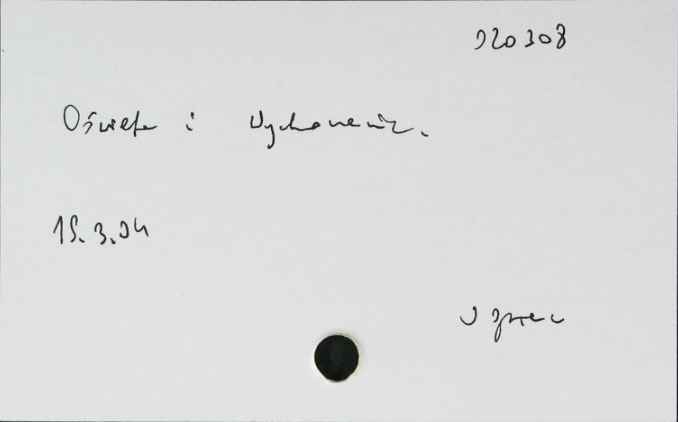 920308
Oświata i Wychowanie.
15.3.94